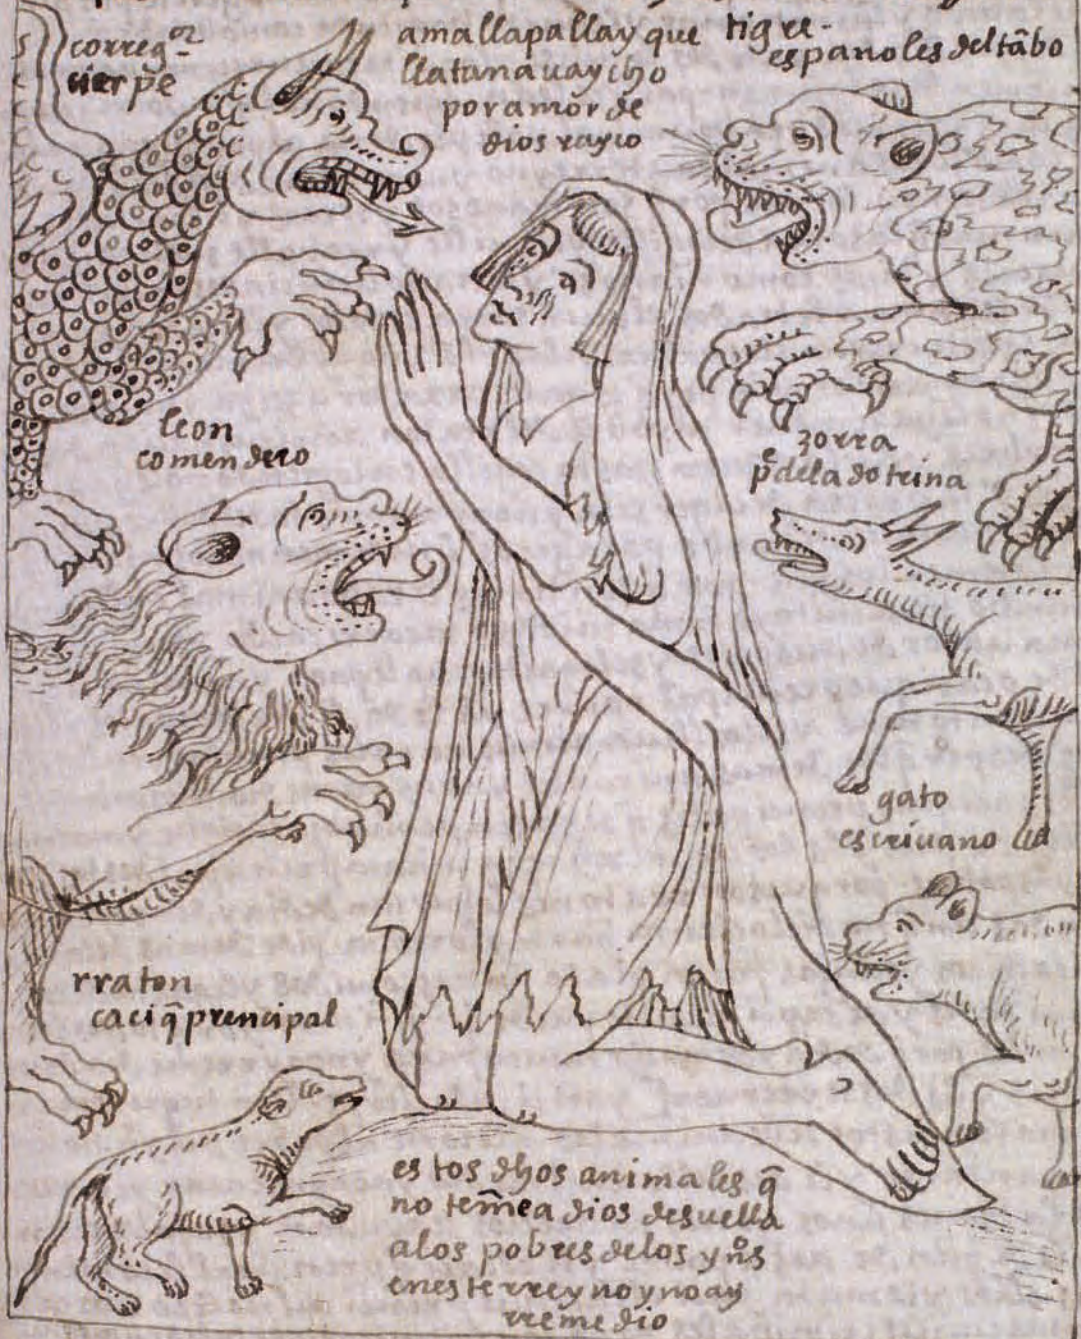 correg.or
cierpe
amallapallay que
llatanauaycho
por amor de
dios rayco
tigre.
españoles del tãbo
leon
comendero
zorra
pe de la dotrina
gato
escriuano
rraton
caciq̃ prencipal
estos dhos animales q̃
no tem̃e a dios desuella
a los pobres de los yños
en este rreyno y no ay
rremedio